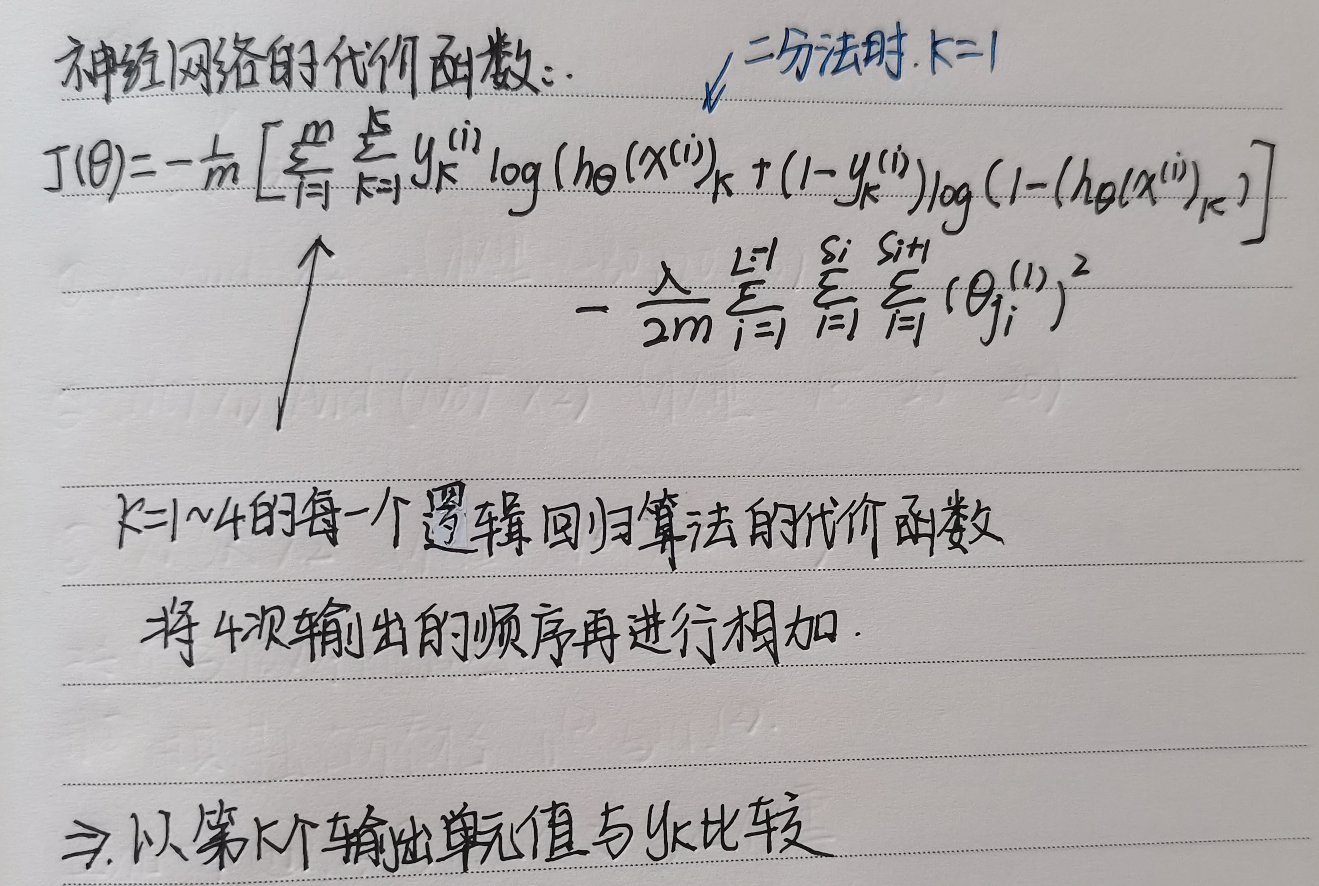 神经网络的代价函数:.
二分法时. K=1
J(θ)=-1/m [∑_{i=1}^{m} ∑_{K=1}^{K} y_K^{(i)} log(hθ(x^{(i)})_K + (1-y_K^{(i)})log(1-(hθ(x^{(i)})_K)]
- λ/2m ∑_{i=1}^{L=1} ∑_{i=1}^{Si} ∑_{i=1}^{Si+1} (θ_{ji}^{(l)})^2
K=1~4的每一个逻辑回归算法的代价函数
将4次输出的顺序再进行相加.
⇒. 以第K个输出单元值与yK比较